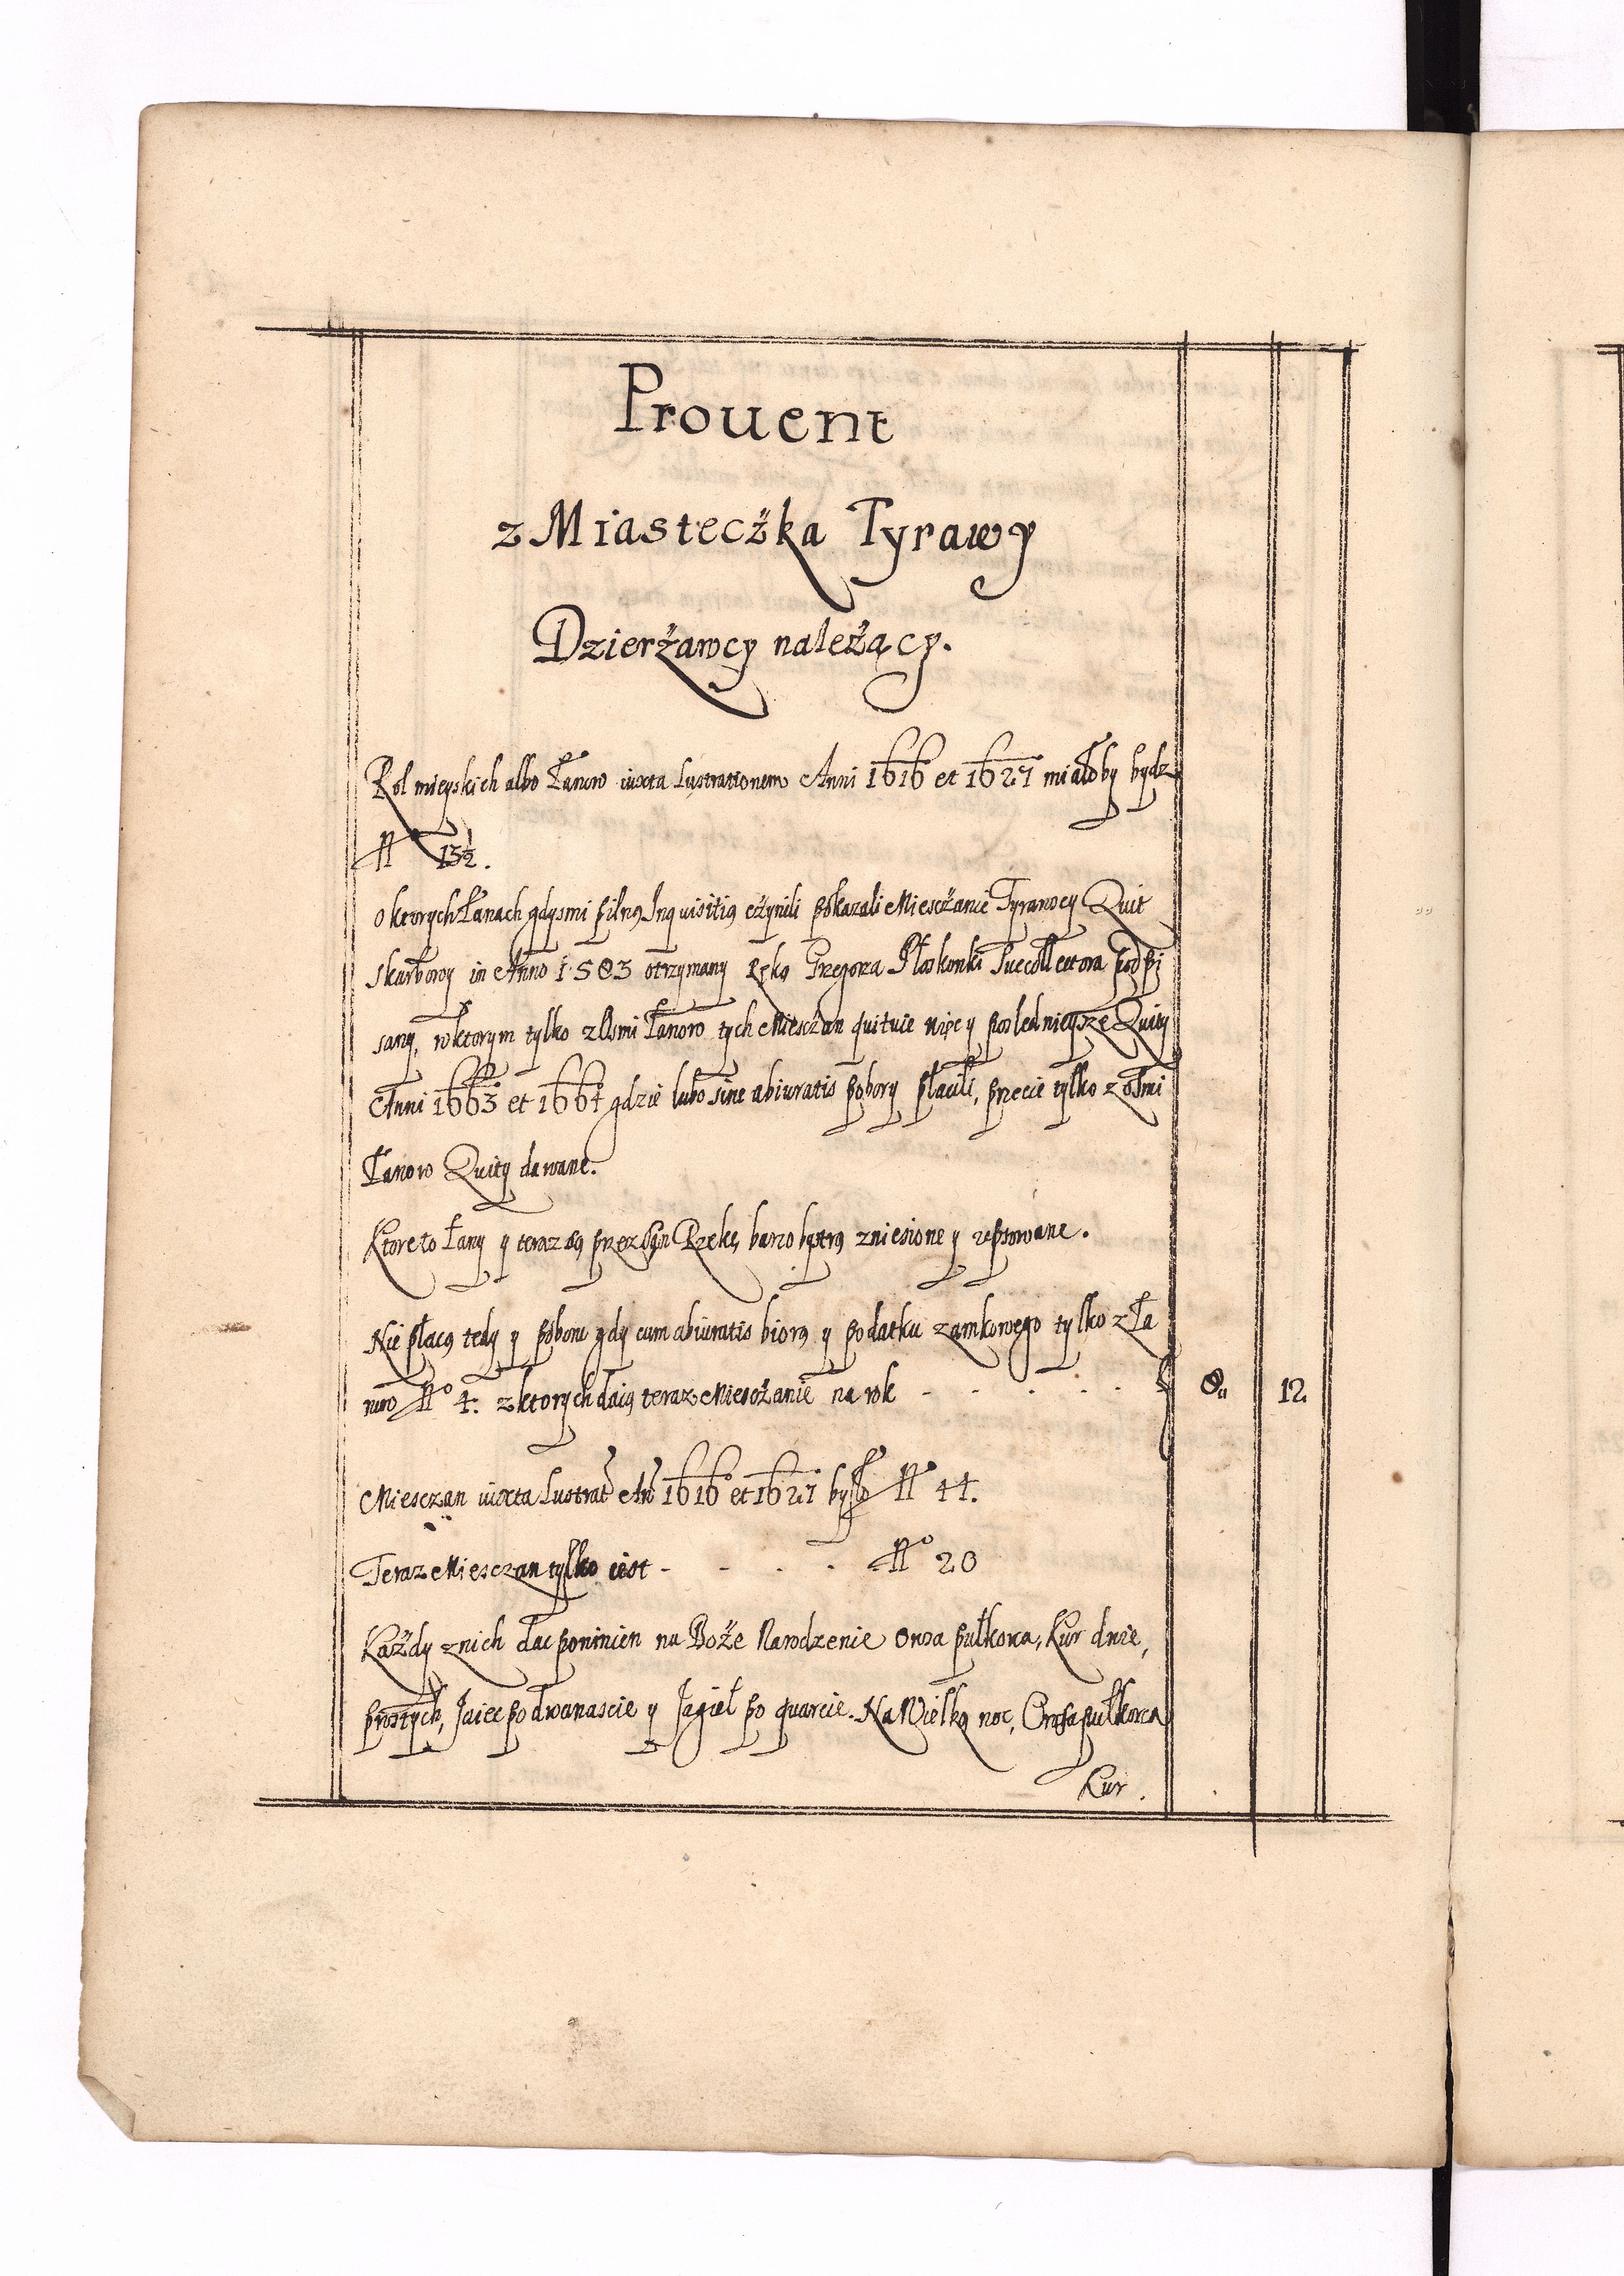 Prouent
z Miasteczka Tyrawy
Dzierżawcy należący.
Rol mieyskich albo Łanow iuxta Lustrationem Anni 1616 et 1627 miałoby bydz
No 13½.
o ktorych Łanach gdysmi pilną Inquisitią czynili pokazali Miesczanie Tyrawscy Quit
skarbowy in Anno 1583 otrzymany ręką Grzegorza Płoskonki Succollectora podpi
sany, w ktorym tylko z Osmi Łanow tych Miesczan quituie więc y poslednieysze Quity
Anni 1663 et 1664 gdzie lubo sine abiuratis pobory płacili, przecie tylko z osmi
Łanow Quity dawane.
Ktore to Łany y teraz są przez San Rzekę barzo bystrą zniesione y zepsowane.
Nie płacą tedy y poboru gdy cum abiuratis biorą y podatku zamkowego tylko z Ła
now No 4. z ktorych daią teraz Miesczanie na rok - - - - - 8 12
Miesczan iuxta Lustrat An 1616 et 1627 było No 44.
Teraz Miesczan tylko iest - - - - No 20
Każdy z nich dac powinien na Boże Narodzenie Owsa pułkorca, Kur dwie,
prostych, Jaiec po dwanascie y Jagieł po quarcie. Na Wielką noc, Owsa pułkorca
Kur.